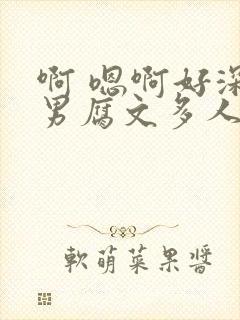 啊 嗯啊好深
男腐文多人
软萌菜果酱